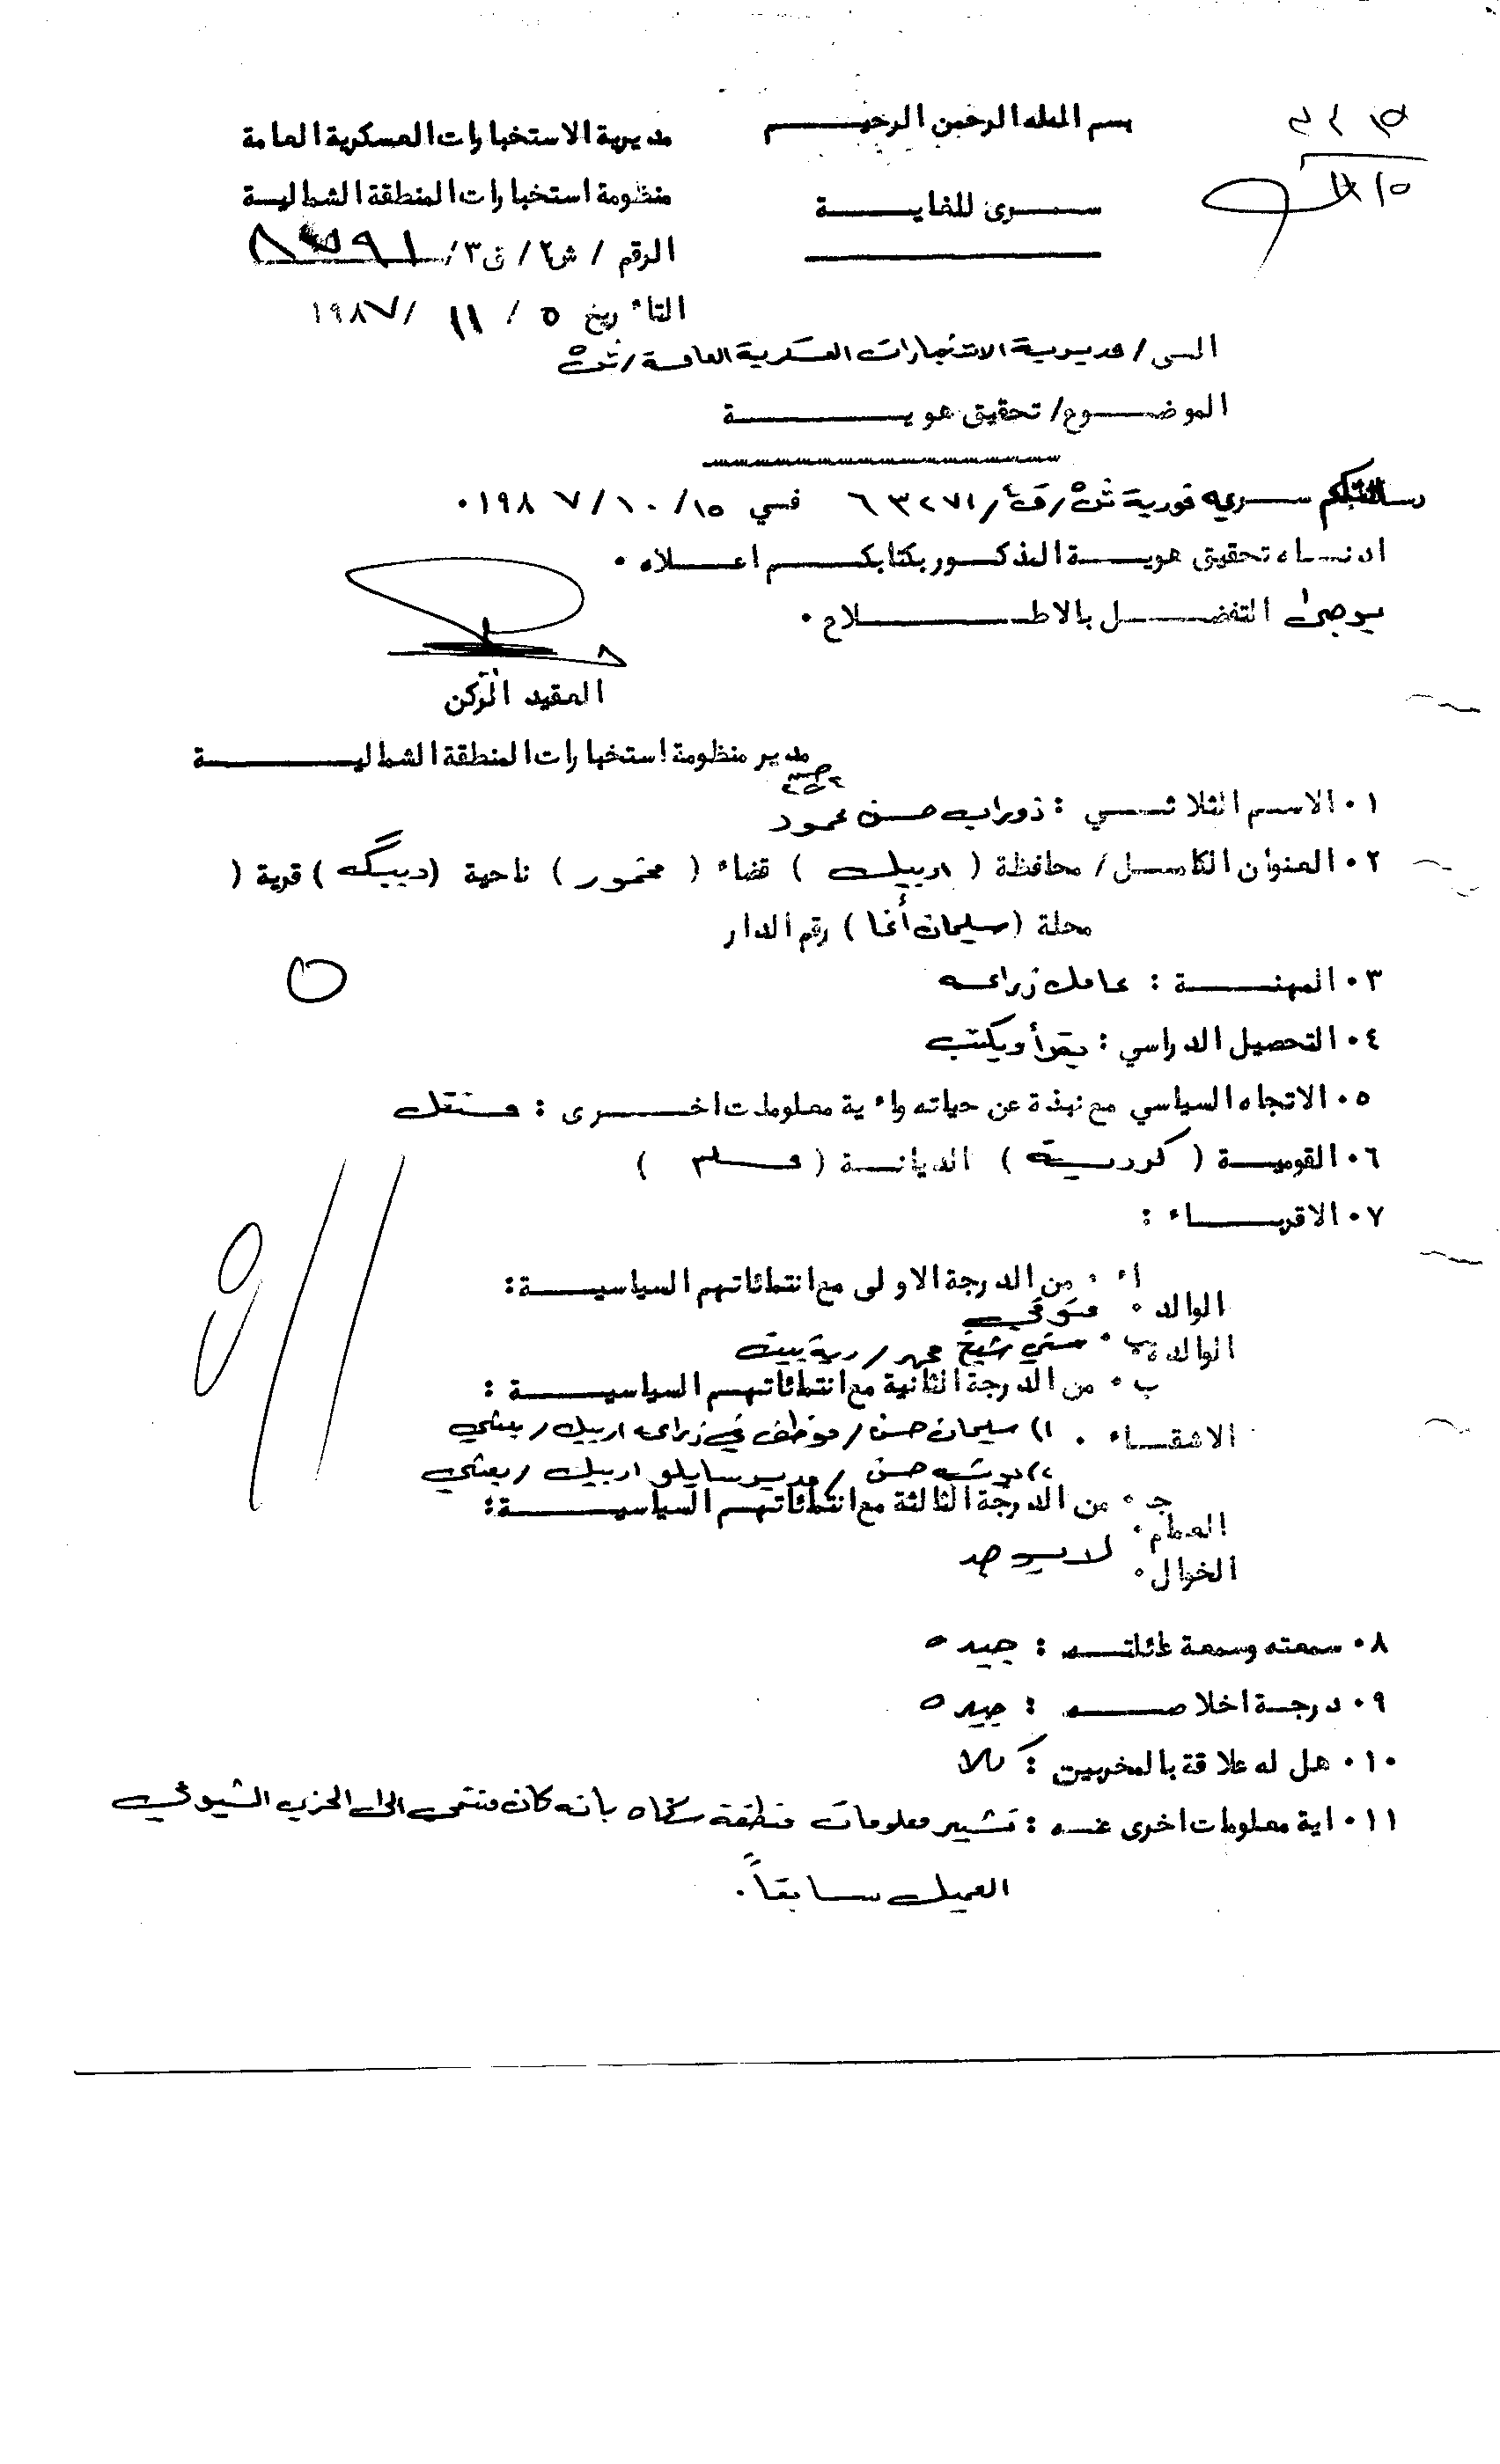 بسم الله الرحمن الرحيم
سري للغاية
مديرية الاستخبارات العسكرية العامة
منظومة استخبارات المنطقة الشمالية
الرقم / ش٢ / ق٣ /
التاريخ ٥ / ١١ / ١٩٨٧
الى / مديرية الاستخبارات العسكرية العامة /
الموضوع / تحقيق هوية
سري وفورية ٦٣٢٧١ في ١٥ / ١٠ / ١٩٨٧ ٠
ادناه تحقيق هوية المذكور بكتابكم اعلاه ٠
يرجى التفضل بالاطلاع ٠
العقيد الركن
مدير منظومة استخبارات المنطقة الشمالية
١ ٠ الاسم الثلاثي : حسن محمود
٢ ٠ العنوان الكامل / محافظة ( اربيل ) قضاء ( مخمور ) ناحية ( ديبگه ) قرية (
محلة ( سليمان أغا ) رقم الدار
٣ ٠ المهنة : عامل زراعه
٤ ٠ التحصيل الدراسي : يقرأ ويكتب
٥ ٠ الاتجاه السياسي مع نبذة عن حياته واية معلومات اخرى : مستقل
٦ ٠ القومية ( كوردية ) الديانة ( مسلم )
٧ ٠ الاقرباء :
أ ٠ من الدرجة الاولى مع انتمائاتهم السياسية :
الوالد ٠ متوفي
الوالدة ٠ شيخ / ربة بيت
ب ٠ من الدرجة الثانية مع انتمائاتهم السياسية :
الاشقاء ٠ ١) سليمان حسن / موظف في زراعه اربيل / بعثي
٢) حسن / مدير سايلو اربيل / بعثي
جـ ٠ من الدرجة الثالثة مع انتمائاتهم السياسية :
العمام ٠
لا يوجد
الخوال ٠
٨ ٠ سمعته وسمعة عائلته : جيده
٩ ٠ درجة اخلاصه : جيده
١٠ ٠ هل له علاقة بالمخربين : كلا
١١ ٠ اية معلومات اخرى عنه : تشير معلومات منطقة سكناه بانه كان منتمي الى الحزب الشيوعي
العميل سابقاً ٠